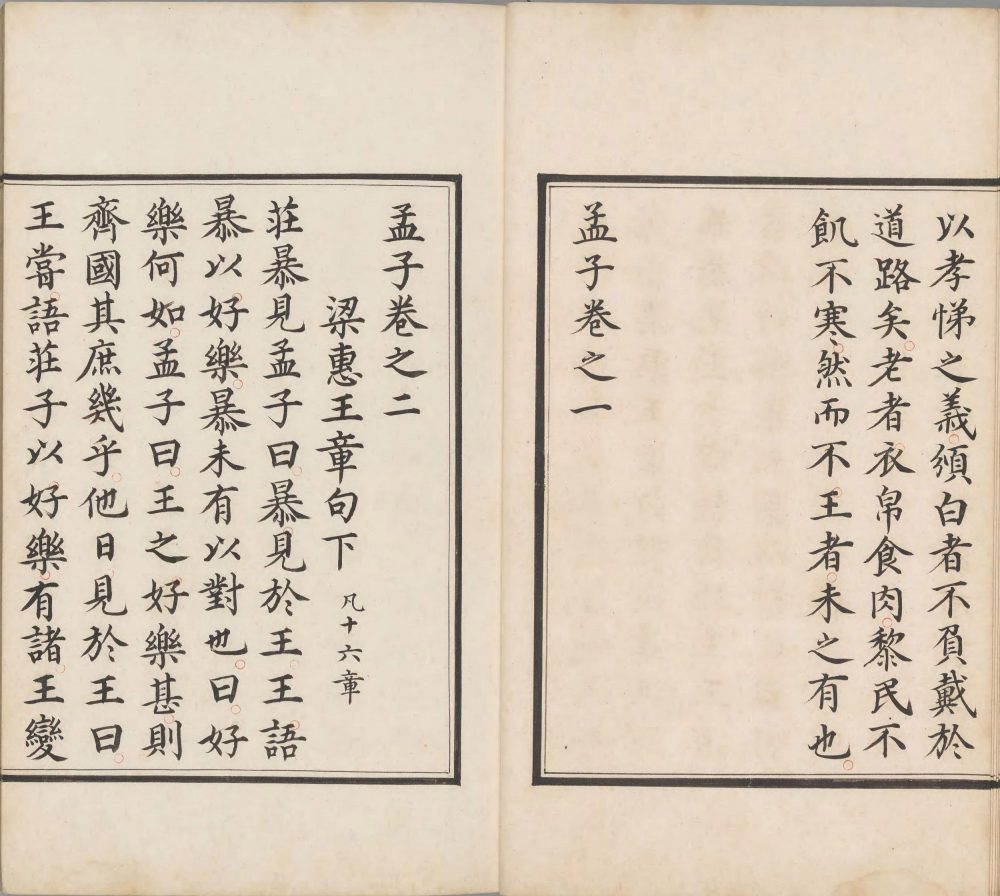 以孝悌之義頒白者不負戴於
道路矣老者衣帛食肉黎民不
飢不寒然而不王者未之有也
孟子卷之一
孟子卷之二
梁惠王章句下 凡十六章
莊暴見孟子曰暴見於王王語
暴以好樂暴未有以對也曰好
樂何如孟子曰王之好樂甚則
齊國其庶幾乎他日見於王曰
王嘗語莊子以好樂有諸王變